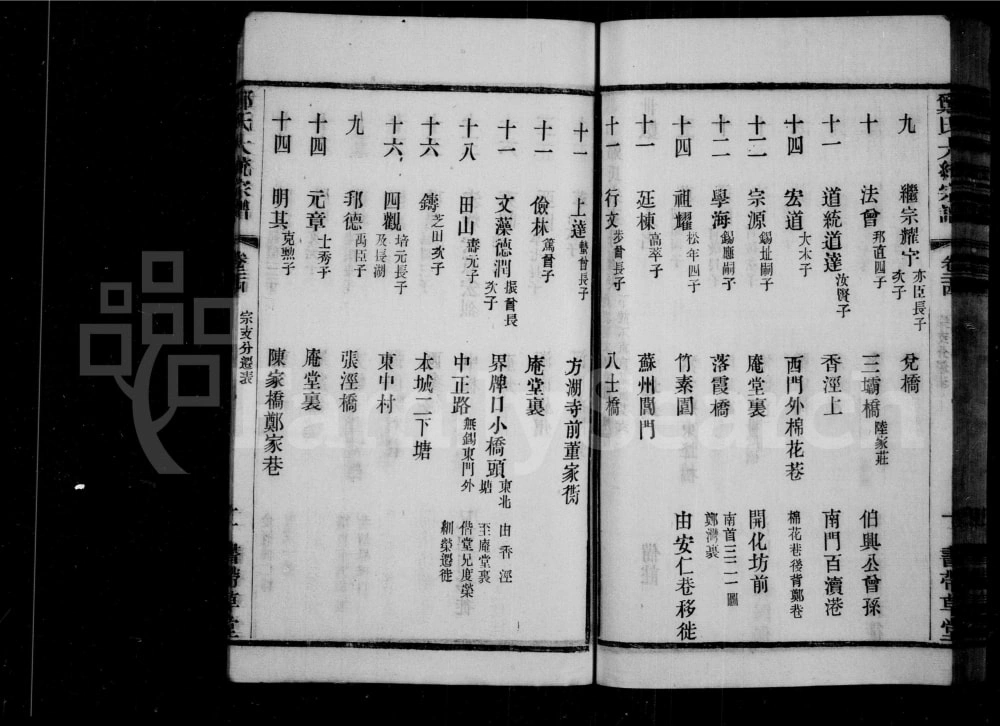 鄭氏大統宗譜 卷三十四 十一 書帶草堂
九 繼宗耀宇 亦臣長子 次子 兌橋
十 法曾 邦直四子 三壩橋 陸家莊 伯興公曾孫
十一 道統道達 汝賢子 香涇上 南門百瀆港
十四 宏道 大木子 西門外棉花巷 棉花巷後背鄭巷
十二 宗源 錫址嗣子 庵堂裏 開化坊前
十二 學海 錫應嗣子 落霞橋 南首三二一圖 鄭灣裏
十四 祖耀 松年四子 竹素園 由安仁巷移徙
十一 廷棟 高萃子 蘇州閶門
十一 行文 步曾長子 八士橋
十一 上達 蟄曾長子 方湖寺前董家衖
十一 儉林 篤曾子 庵堂裏
十一 文藻德潤 振曾長 次子 界牌口小橋頭 東北 塘 由香涇 至庵堂裏
十八 田山 壽元子 中正路 無錫東門外 偕堂兄度榮 細榮遷徙
十六 鑄 芝田次子 本城二下塘
十六 四觀 培元長子 及長湖 東中村
九 邦德 禹臣子 張涇橋
十四 元章 士秀子 庵堂裏
十四 明其 克勲子 陳家橋鄭家巷
鄭氏大統宗譜 卷三十四 宗支分遷表 十一 書帶草堂
familysearch